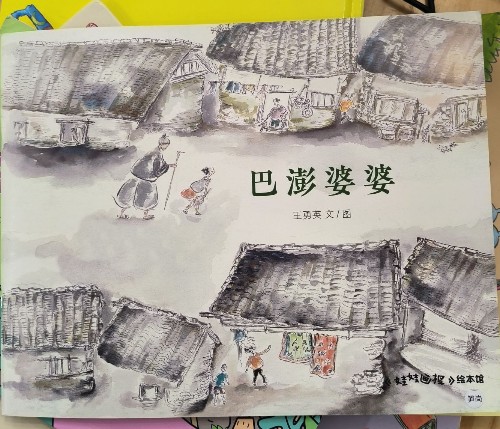 巴澎婆婆
王勇英 文/图
《娃娃画报》绘本馆